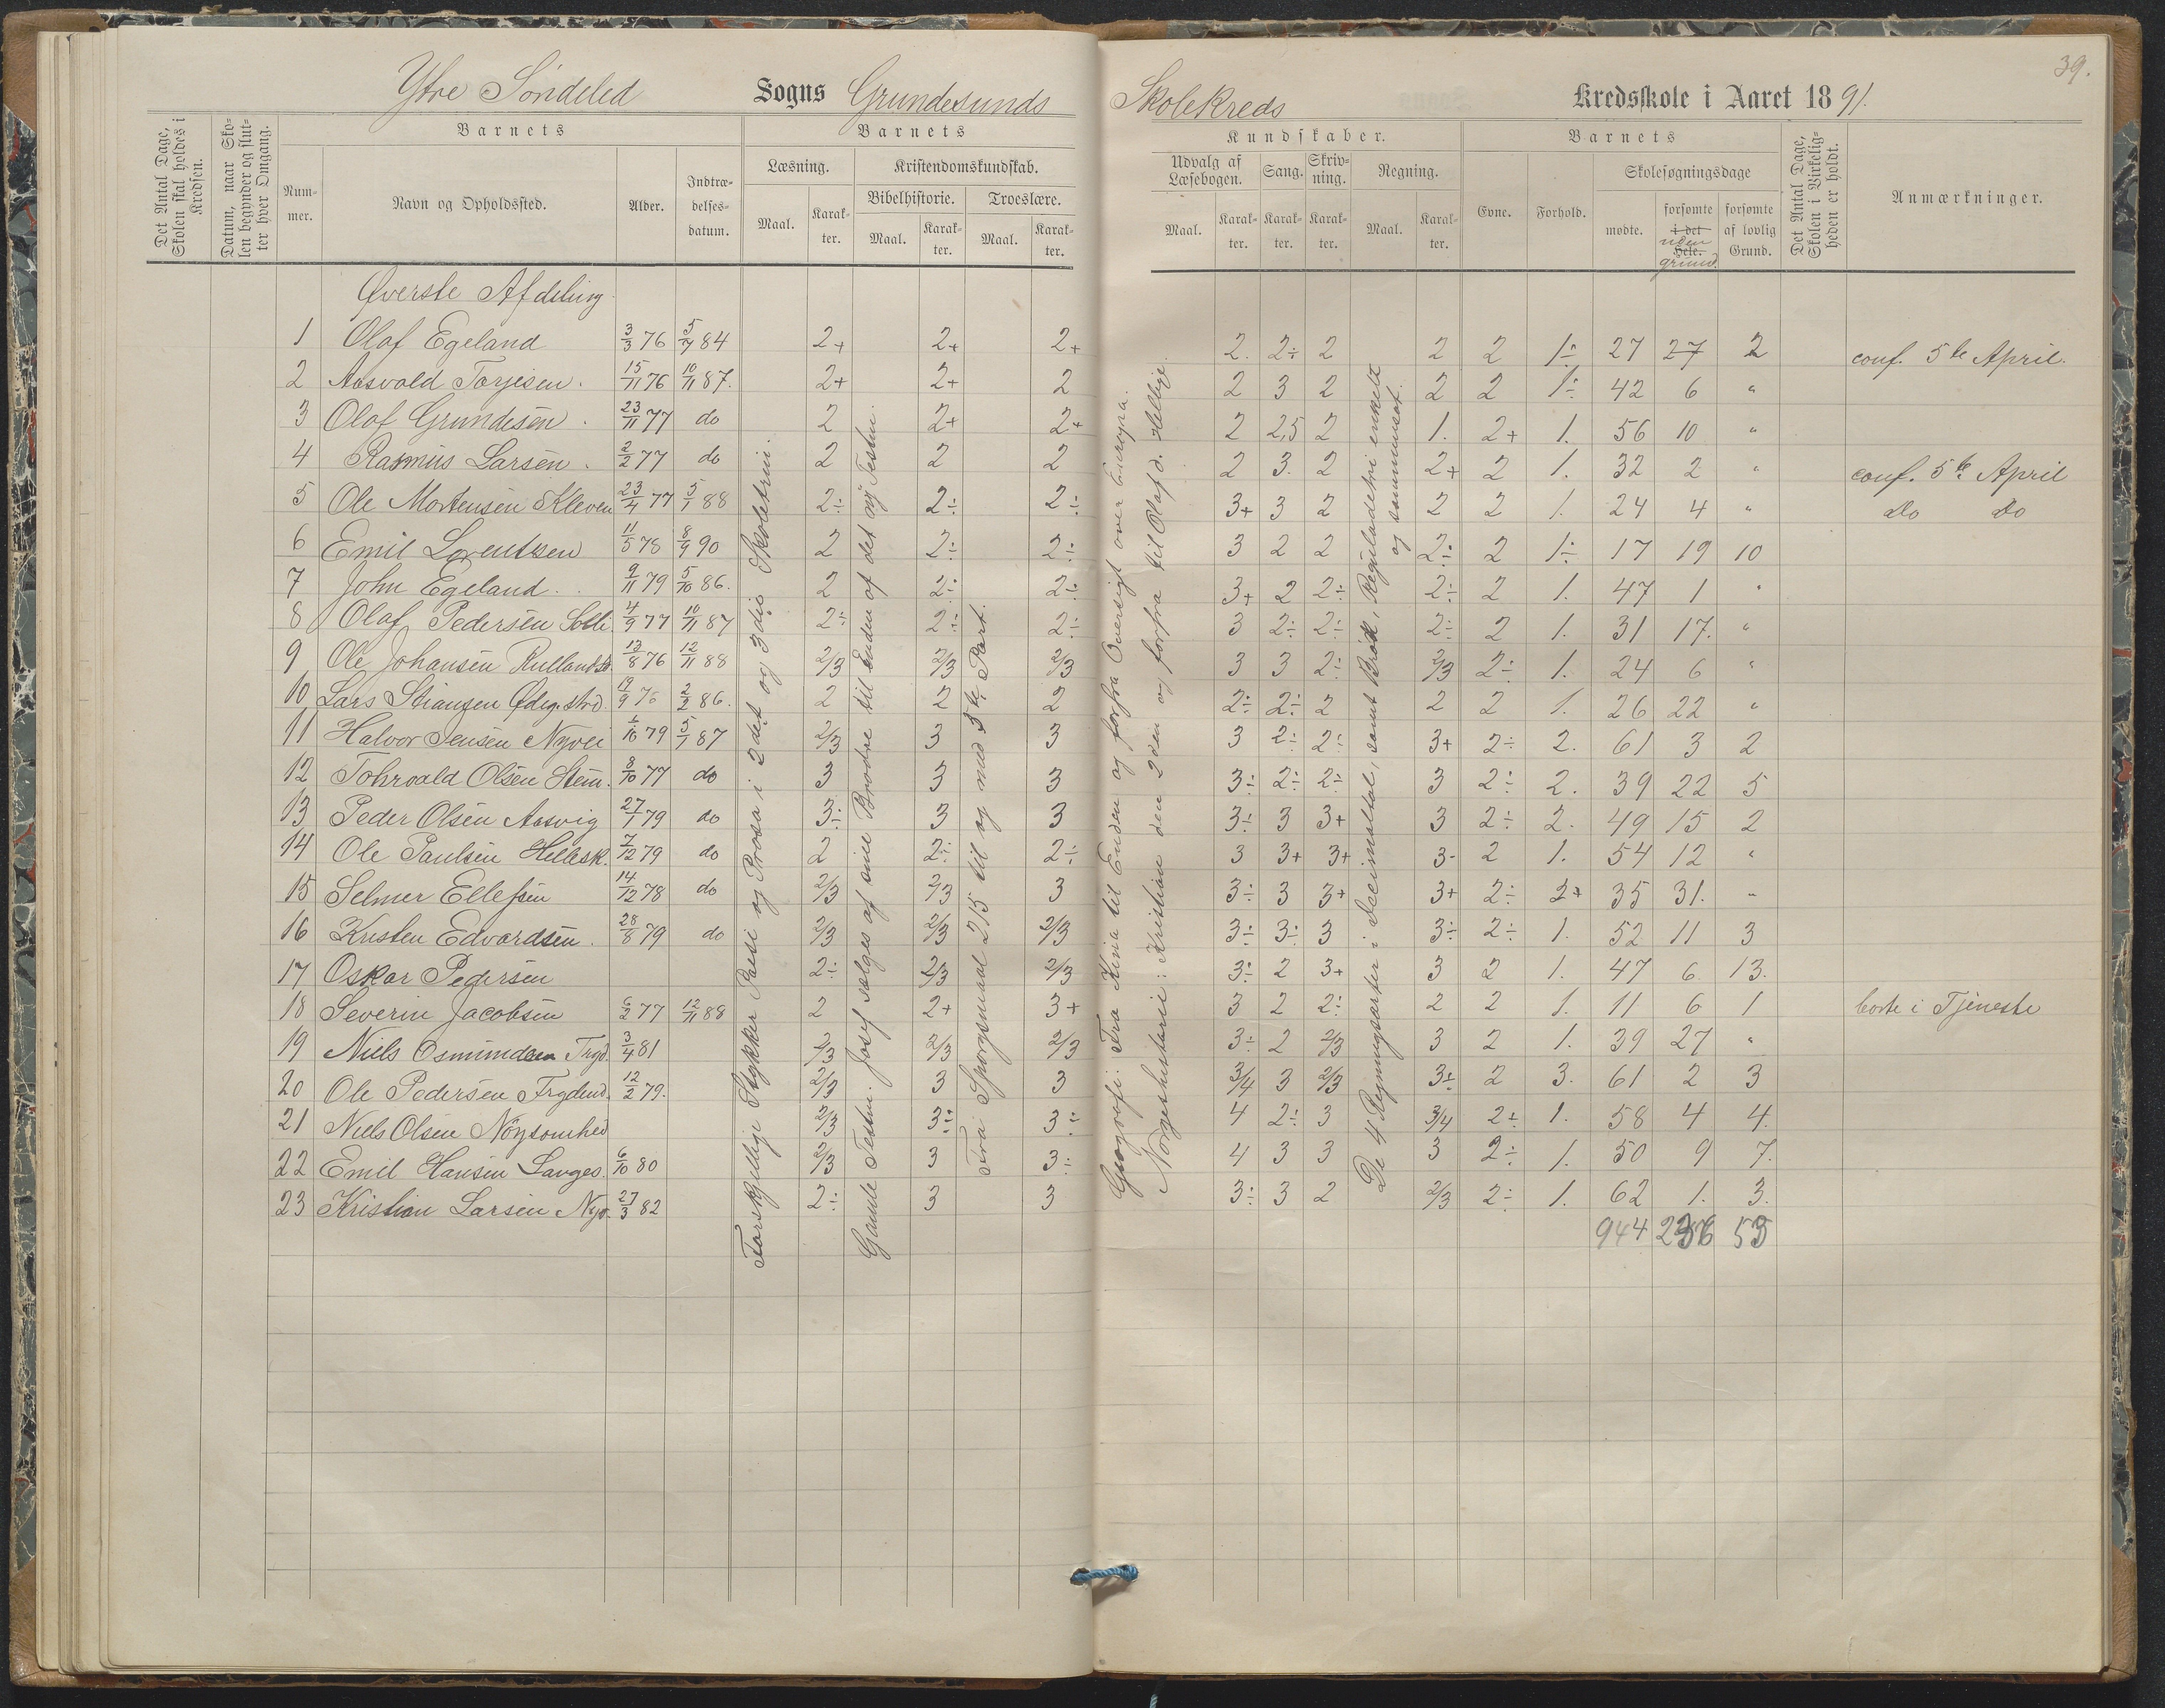 39.
Ytre Söndeled Sogns Grundesunds Skolekreds Kredsskole i Aaret 1891.
Det Antal Dage, Skolen skal holdes i Kredsen.
Datum, naar Skolen begynder og slutter hver Omgang.
Barnets
Nummer.
Navn og Opholdssted.
Alder.
Indtrædelsesdatum.
Barnets
Læsning.
Maal. Karakter.
Kristendomskundskab.
Bibelhistorie. Troeslære.
Maal. Karakter. Maal. Karakter.
Kundskaber.
Udvalg af Læsebogen. Sang. Skrivning. Regning.
Maal. Karakter. Karakter. Karakter. Maal. Karakter.
Barnets
Evne. Forhold.
Skolesøgningsdage
mødte. forsømte i det Hele. uden grund. forsømte af lovlig Grund.
Det Antal Dage, Skolen i Virkeligheden er holdt.
Anmærkninger.
Øverste Afdeling
1 Olaf Egeland 3/3 76 5/7 84 2+ 2+ 2+ 2. 2÷ 2 2 2 1÷ 27 27 2 conf. 5te April.
2 Aasvald Torjesen. 15/11 76 10/11 87. 2+ 2+ 2 2 3 2 2 2 1÷ 42 6 "
3 Olaf Grundesen. 23/11 77 do 2 2+ 2+ 2 2,5 2 1. 2+ 1. 56 10 "
4 Rasmus Larsen. 2/2 77 do 2 2 2 2 3. 2 2+ 2 1. 32 2 " conf. 5te April
5 Ole Mortensen Kleven 23/4 77 5/1 88 2÷ 2÷ 2÷ 3+ 3 2 2 2 1. 24 4 " Do Do
6 Emil Lorentsen 11/5 78 8/9 90 2 2÷ 2÷ 3 2 2 2÷ 2 1÷ 17 19 10
7 John Egeland. 9/11 79 5/10 86. 2 2÷ 2÷ 3+ 2 2÷ 2÷ 2 1. 47 1 "
8 Olaf Pedersen Solli. 4/9 77 10/11 87 2÷ 2÷ 2÷ 3 2÷ 2÷ 2÷ 2 1. 31 17. "
9 Ole Johansen 13/8 76 12/11 88 2/3 2/3 2/3 3 3 2÷ 2/3 2÷ 1. 24 6 "
10 Lars Stiansen Ødeg.strd. 19/9 76 2/2 86. 2 2 2 2÷ 2÷ 2 2 2 1. 26 22 "
11 Halvor Jensen Nyvei 1/10 79 5/1 87 2/3 3 3 3 2÷ 2÷ 3+ 2÷ 2. 61 3 2
12 Tohrvald Olsen Stem. 8/10 77 do 3 3 3 3÷ 2÷ 2÷ 3 2÷ 2. 39 22 5
13 Peder Olsen Aasvig 27/1 79 do 3÷ 3 3 3÷ 3 3+ 3 2÷ 2. 49 15 2
14 Ole Paulsen Hellesk. 7/12 79 do 2 2÷ 2÷ 3 3+ 3+ 3- 2 1. 54 12 "
15 Selmer Ellefsen 14/12 78 do 2/3 2/3 3 3÷ 3 3+ 3+ 2÷ 2+ 35 31. "
16 Kristen Edvardsen. 28/8 79 do 2/3 2/3 2/3 3÷ 3÷ 3 3÷ 2÷ 1. 52 11 3
17 Oskar Pedersen 2÷ 2/3 2/3 3÷ 2 3+ 3 2 1. 47 6 13.
18 Severin Jacobsen 6/2 77 12/11 88 2 2+ 3+ 3 2 2÷ 2 2 1. 11 6 1 borte i Tjeneste
19 Niels Osmundsen Tryd. 3/4 81 2/3 2/3 2/3 3÷ 2 2/3 3 2 1. 39 27 "
20 Ole Pedersen Frydend. 12/2 79. 2/3 3 3 3/4 3 2/3 3÷ 2 3. 61 2 3
21 Niels Olsen Nöysomhed 2/3 3÷ 3÷ 4 2÷ 3 3/4 2÷ 1. 58 4 4.
22 Emil Hansen Sauges. 6/10 80 2/3 3 3÷ 4 3 3 3 2÷ 1. 50 9 7.
23 Kristian Larsen Nyv. 27/3 82 2÷ 3 3 3÷ 3 2 2/3 2÷ 1. 62 1. 3.
944 236 53
Forskjellige Stykker Poesi og Prosa i 2det og 3die Skoletrin.
Gamle Testm. Josef sælges af sine Brødre til Enden af det ny Testm.
Fra Spørgsmaal 215 til og med 3die Part.
Geografi: Fra Kina til Enden og forfra Oversigt over Europa.
Norgeshistorie: Kristian den 2den og forfra til Olaf d. Hellige.
De 4 Regningsarter i Decimaltal, samt Brök, Reguladetri enkelt og sammensat.